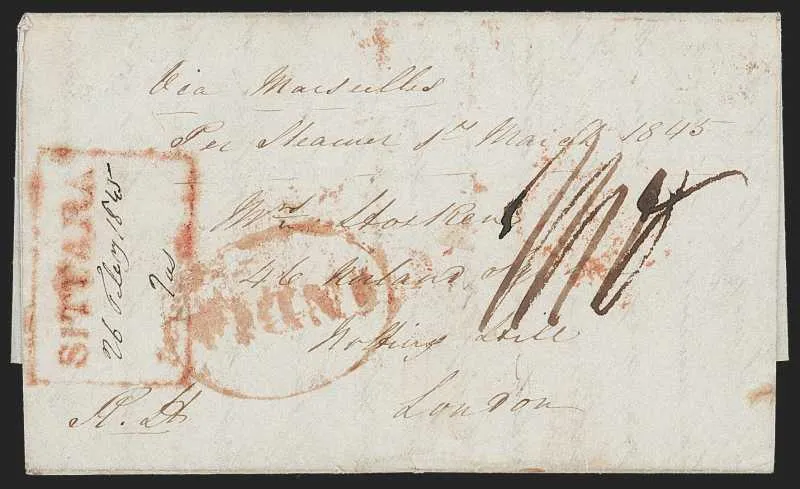 Via Marseilles
Per Steamer 1st March 1845
Mrs Stocken
46
Notting Hill
London
R. H
SITTARA
26 Feby 1845
INDIA